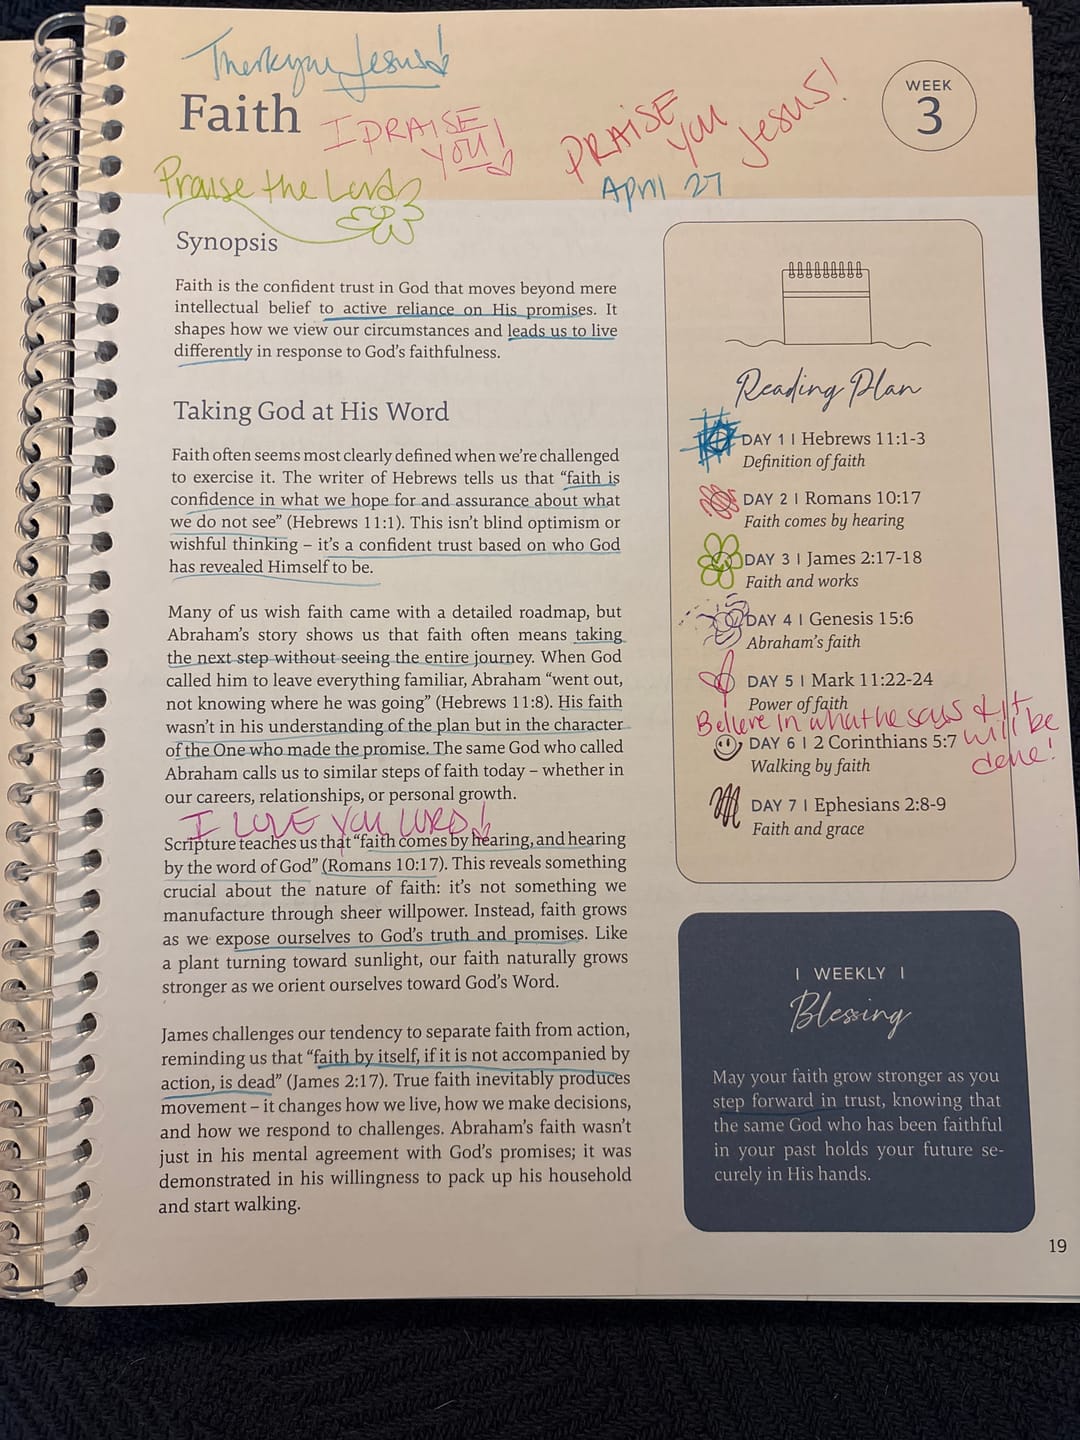 Thank you Jesus!
Faith
I PRAISE
YOU!
PRAISE
you
Jesus!
WEEK
3
Praise the Lord
April 27
Synopsis
Faith is the confident trust in God that moves beyond mere
intellectual belief to active reliance on His promises. It
shapes how we view our circumstances and leads us to live
differently in response to God's faithfulness.
Taking God at His Word
Faith often seems most clearly defined when we're challenged
to exercise it. The writer of Hebrews tells us that "faith is
confidence in what we hope for and assurance about what
we do not see" (Hebrews 11:1). This isn't blind optimism or
wishful thinking – it's a confident trust based on who God
has revealed Himself to be.
Many of us wish faith came with a detailed roadmap, but
Abraham's story shows us that faith often means taking
the next step without seeing the entire journey. When God
called him to leave everything familiar, Abraham "went out,
not knowing where he was going" (Hebrews 11:8). His faith
wasn't in his understanding of the plan but in the character
of the One who made the promise. The same God who called
Abraham calls us to similar steps of faith today – whether in
our careers, relationships, or personal growth.
I LOVE YOU LORD!
Scripture teaches us that "faith comes by hearing, and hearing
by the word of God" (Romans 10:17). This reveals something
crucial about the nature of faith: it's not something we
manufacture through sheer willpower. Instead, faith grows
as we expose ourselves to God's truth and promises. Like
a plant turning toward sunlight, our faith naturally grows
stronger as we orient ourselves toward God's Word.
James challenges our tendency to separate faith from action,
reminding us that "faith by itself, if it is not accompanied by
action, is dead" (James 2:17). True faith inevitably produces
movement – it changes how we live, how we make decisions,
and how we respond to challenges. Abraham's faith wasn't
just in his mental agreement with God's promises; it was
demonstrated in his willingness to pack up his household
and start walking.
Reading Plan
DAY 1 | Hebrews 11:1-3
Definition of faith
DAY 2 | Romans 10:17
Faith comes by hearing
DAY 3 | James 2:17-18
Faith and works
DAY 4 | Genesis 15:6
Abraham's faith
DAY 5 | Mark 11:22-24
Power of faith
Believe in what he says & it
will be
done!
DAY 6 | 2 Corinthians 5:7
Walking by faith
DAY 7 | Ephesians 2:8-9
Faith and grace
| WEEKLY |
Blessing
May your faith grow stronger as you
step forward in trust, knowing that
the same God who has been faithful
in your past holds your future se-
curely in His hands.
19